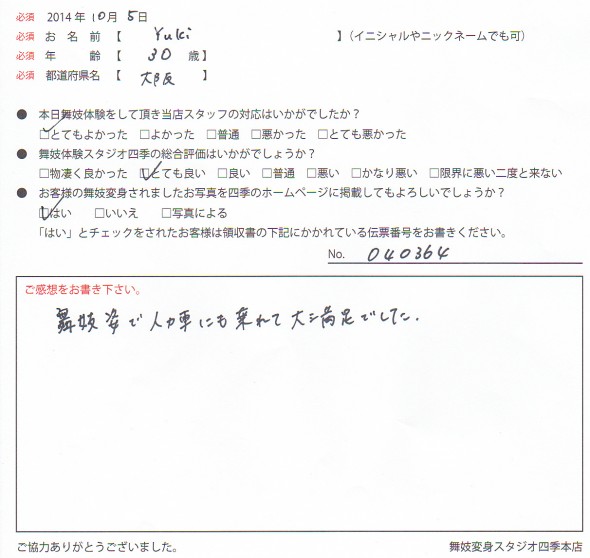 必須 2014年10月5日
必須 お名前【 Yuki 】(イニシャルやニックネームでも可)
必須 年齢【 30 歳】
必須 都道府県名【 大阪 】
● 本日舞妓体験をして頂き当店スタッフの対応はいかがでしたか？
☑とてもよかった □よかった □普通 □悪かった □とても悪かった
● 舞妓体験スタジオ四季の総合評価はいかがでしょうか？
□物凄く良かった ☑とても良い □良い □普通 □悪い □かなり悪い □限界に悪い二度と来ない
● お客様の舞妓変身されましたお写真を四季のホームページに掲載してもよろしいでしょうか？
☑はい □いいえ □写真による
「はい」とチェックをされたお客様は領収書の下記にかかれている伝票番号をお書きください。
No. 040364
ご感想をお書き下さい。
舞妓姿で人力車にも乗れて大満足でした.
ご協力ありがとうございました。 舞妓変身スタジオ四季本店